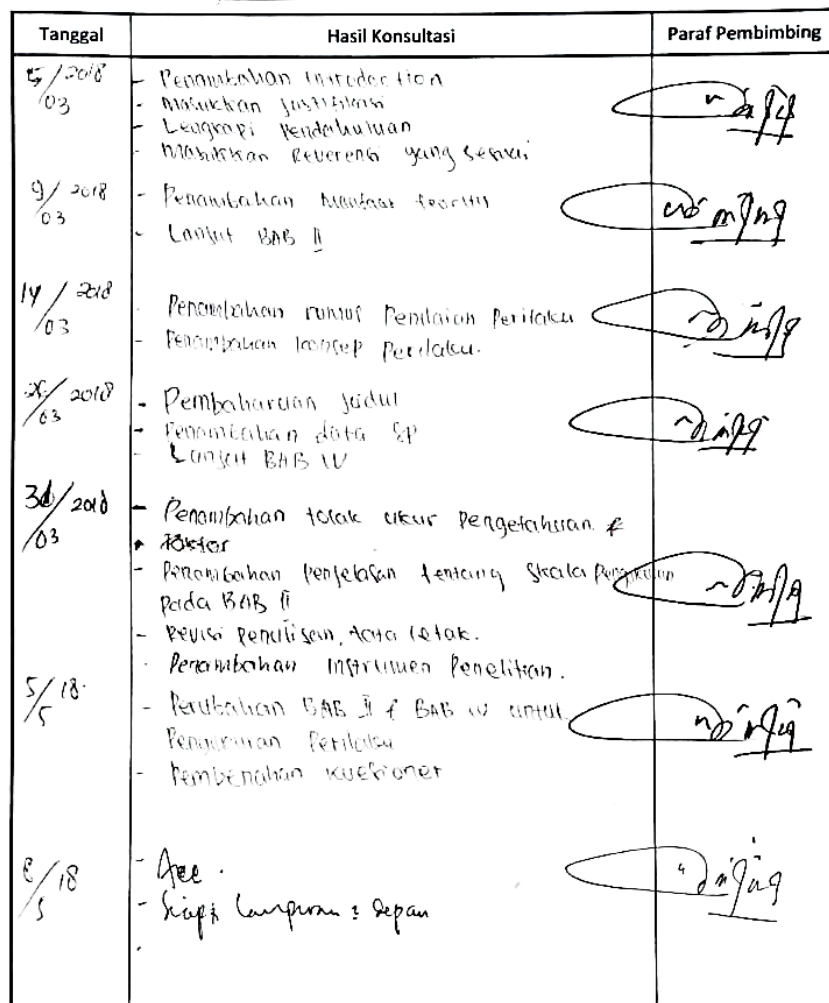 Tanggal Hasil Konsultasi Paraf Pembimbing
5/03 2018 - Penambahan Introdoction
- Masukkan Justifikasi
- Lengkapi Pendahuluan
- Masukkan Reverensi yang sesuai
9/03 2018 - Penambahan Manfaat teoritis
- Lanjut BAB II
14/03 2018 Penambahan rumus Penilaian Perilaku
- Penambahan konsep Perilaku.
/03 2018 - Pembaharuan Judul
- Penambahan data SP
- Lanjut BAB IV
/03 2018 - Penambahan tolak ukur Pengetahuan.
- Penambahan Penjelasan tentang Skala Pengukuran
pada BAB II
- Revisi Penulisan, tata letak.
- Penambahan Instrumen Penelitian.
5/5 18. - Perubahan BAB II & BAB IV untuk
Perilaku
- Pembenahan kuesioner
8/5 18 - Acc.
- Lampiran depan